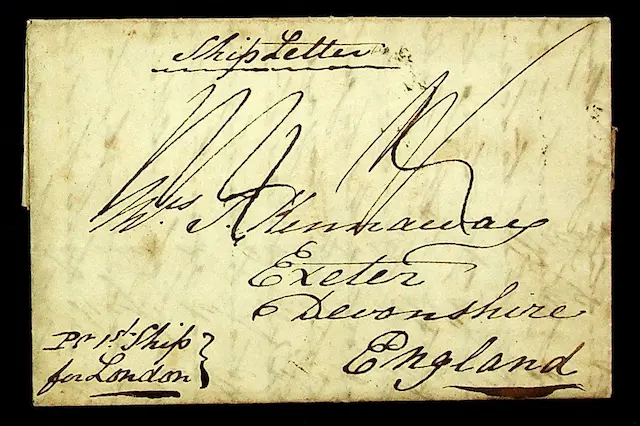 Ship Letter
Mrs T. Kennaway
Exeter
Devonshire
England
Pr 1st Ship
for London